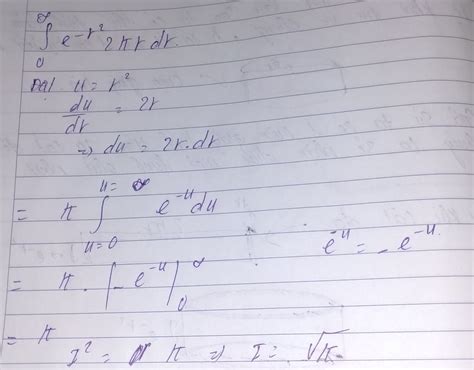 ∫₀^∞ e^{-r²} 2πr dr.
Đặt u = r²
du/dr = 2r
=> du = 2r.dr
= π ∫_{u=0}^{u=∞} e^{-u} du
e^{-u} = -e^{-u}
= π . [-e^{-u}|₀^∞
= π
I² = π => I = √π